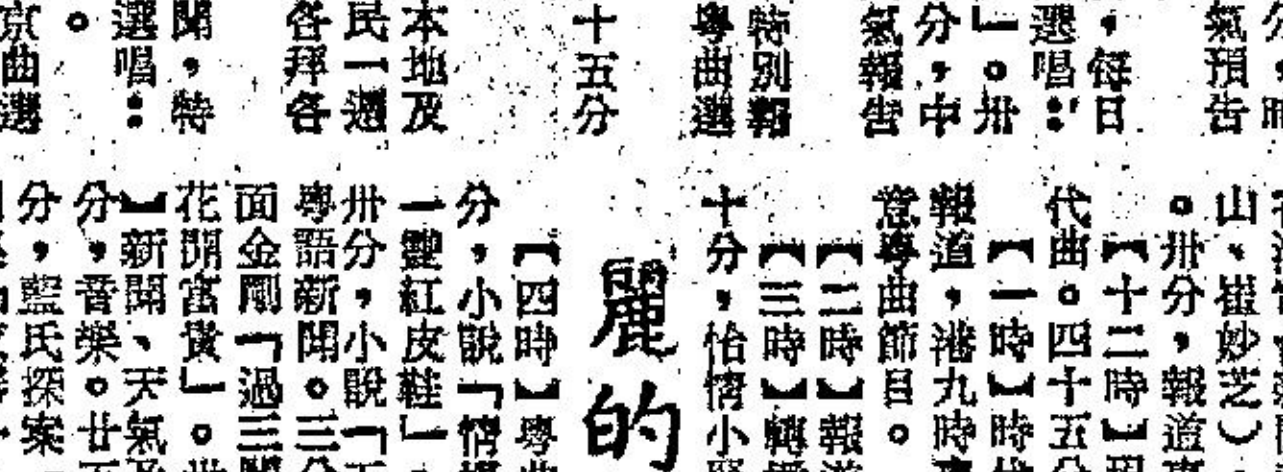 氣預告
，每日
選唱：
」。卅
分，中
氣報告
特別報
粵曲選
十五分
本地及
民一週
各拜各
聞，特
選唱：
。
京曲選
山、崔妙芝）
。卅分，報道
【十二時】
代曲。四十五分
【一時】時
報道，港九時
意粵曲節目。
【二時】報
【三時】轉
十分，怡情小
麗的
【四時】粵曲
分，小說「情
一雙紅皮鞋」
卅分，小說「
粵語新聞。三分
面金剛「過三
花開富貴」。
】新聞、天氣
分，音樂。廿
分，藍氏探案